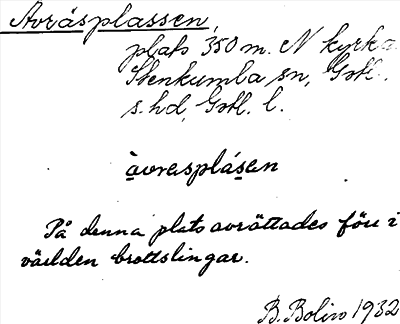 Avräsplassen,
plats 350 m. N kyrka.
Stenkumla sn, Gotl.
s. hd, Gotl. l.
àvresplásen
På denna plats avrättades förr i
världen brottslingar.
B. Bolin 1932